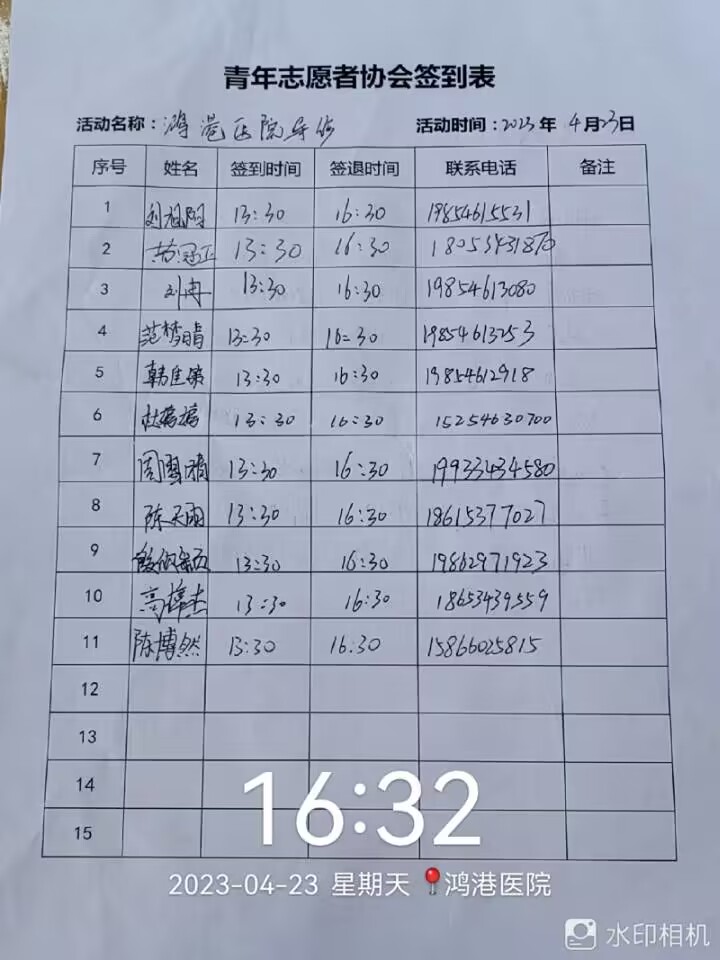 青年志愿者协会签到表
活动名称：鸿港医院导诊 活动时间：2023年 4月23日
序号 姓名 签到时间 签退时间 联系电话 备注
1 刘旭阳 13:30 16:30 19854615531
2 苗冠正 13:30 16:30 18053431870
3 刘冉 13:30 16:30 19854613080
4 范梦晴 13:30 16:30 19854613253
5 13:30 16:30 19854612918
6 13:30 16:30 15254630700
7 13:30 16:30 19933434580
8 陈天雨 13:30 16:30 18615377027
9 13:30 16:30 19862971923
10 13:30 16:30 18653439559
11 陈博然 13:30 16:30 15866025815
12
13
14
15
16:32
2023-04-23 星期天 鸿港医院
水印相机